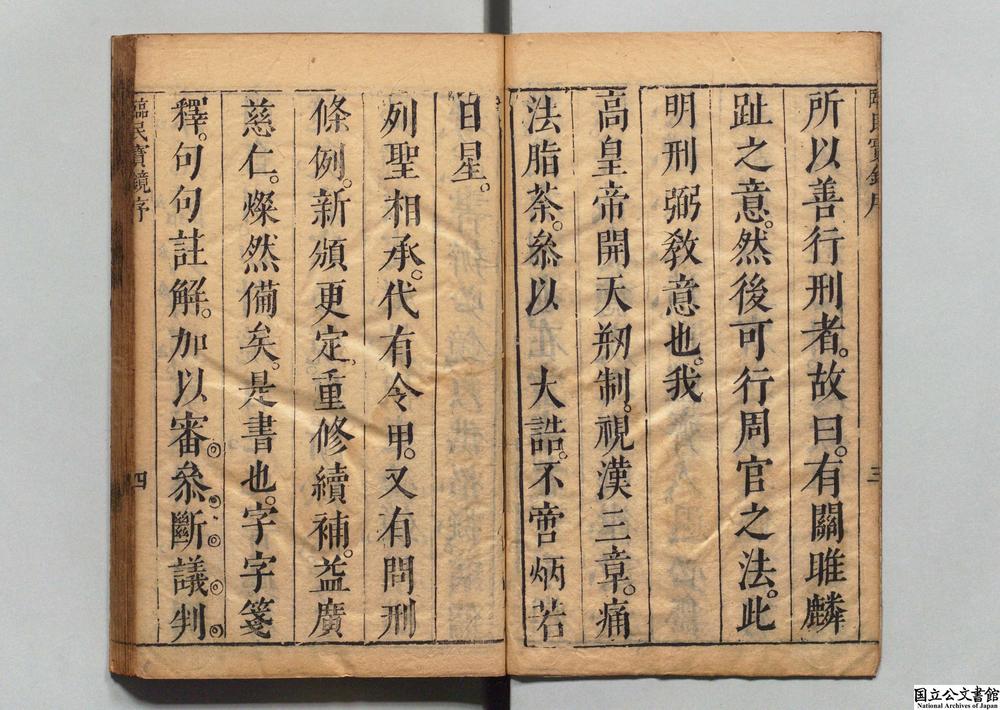 臨民寶鏡序
三
所以善行刑者。故曰。有關雎麟
趾之意。然後可行周官之法。此
明刑弼敎意也。我
高皇帝開天剏制。視漢三章。痛
法脂茶。叅以 大誥。不啻炳若
日星。
列聖相承。代有令甲。又有問刑
條例。新頒更定。重修續補。益廣
慈仁。燦然備矣。是書也。字字箋
釋。句句註解。加以審叅斷議判
臨民寶鏡序
四
国立公文書館
National Archives of Japan